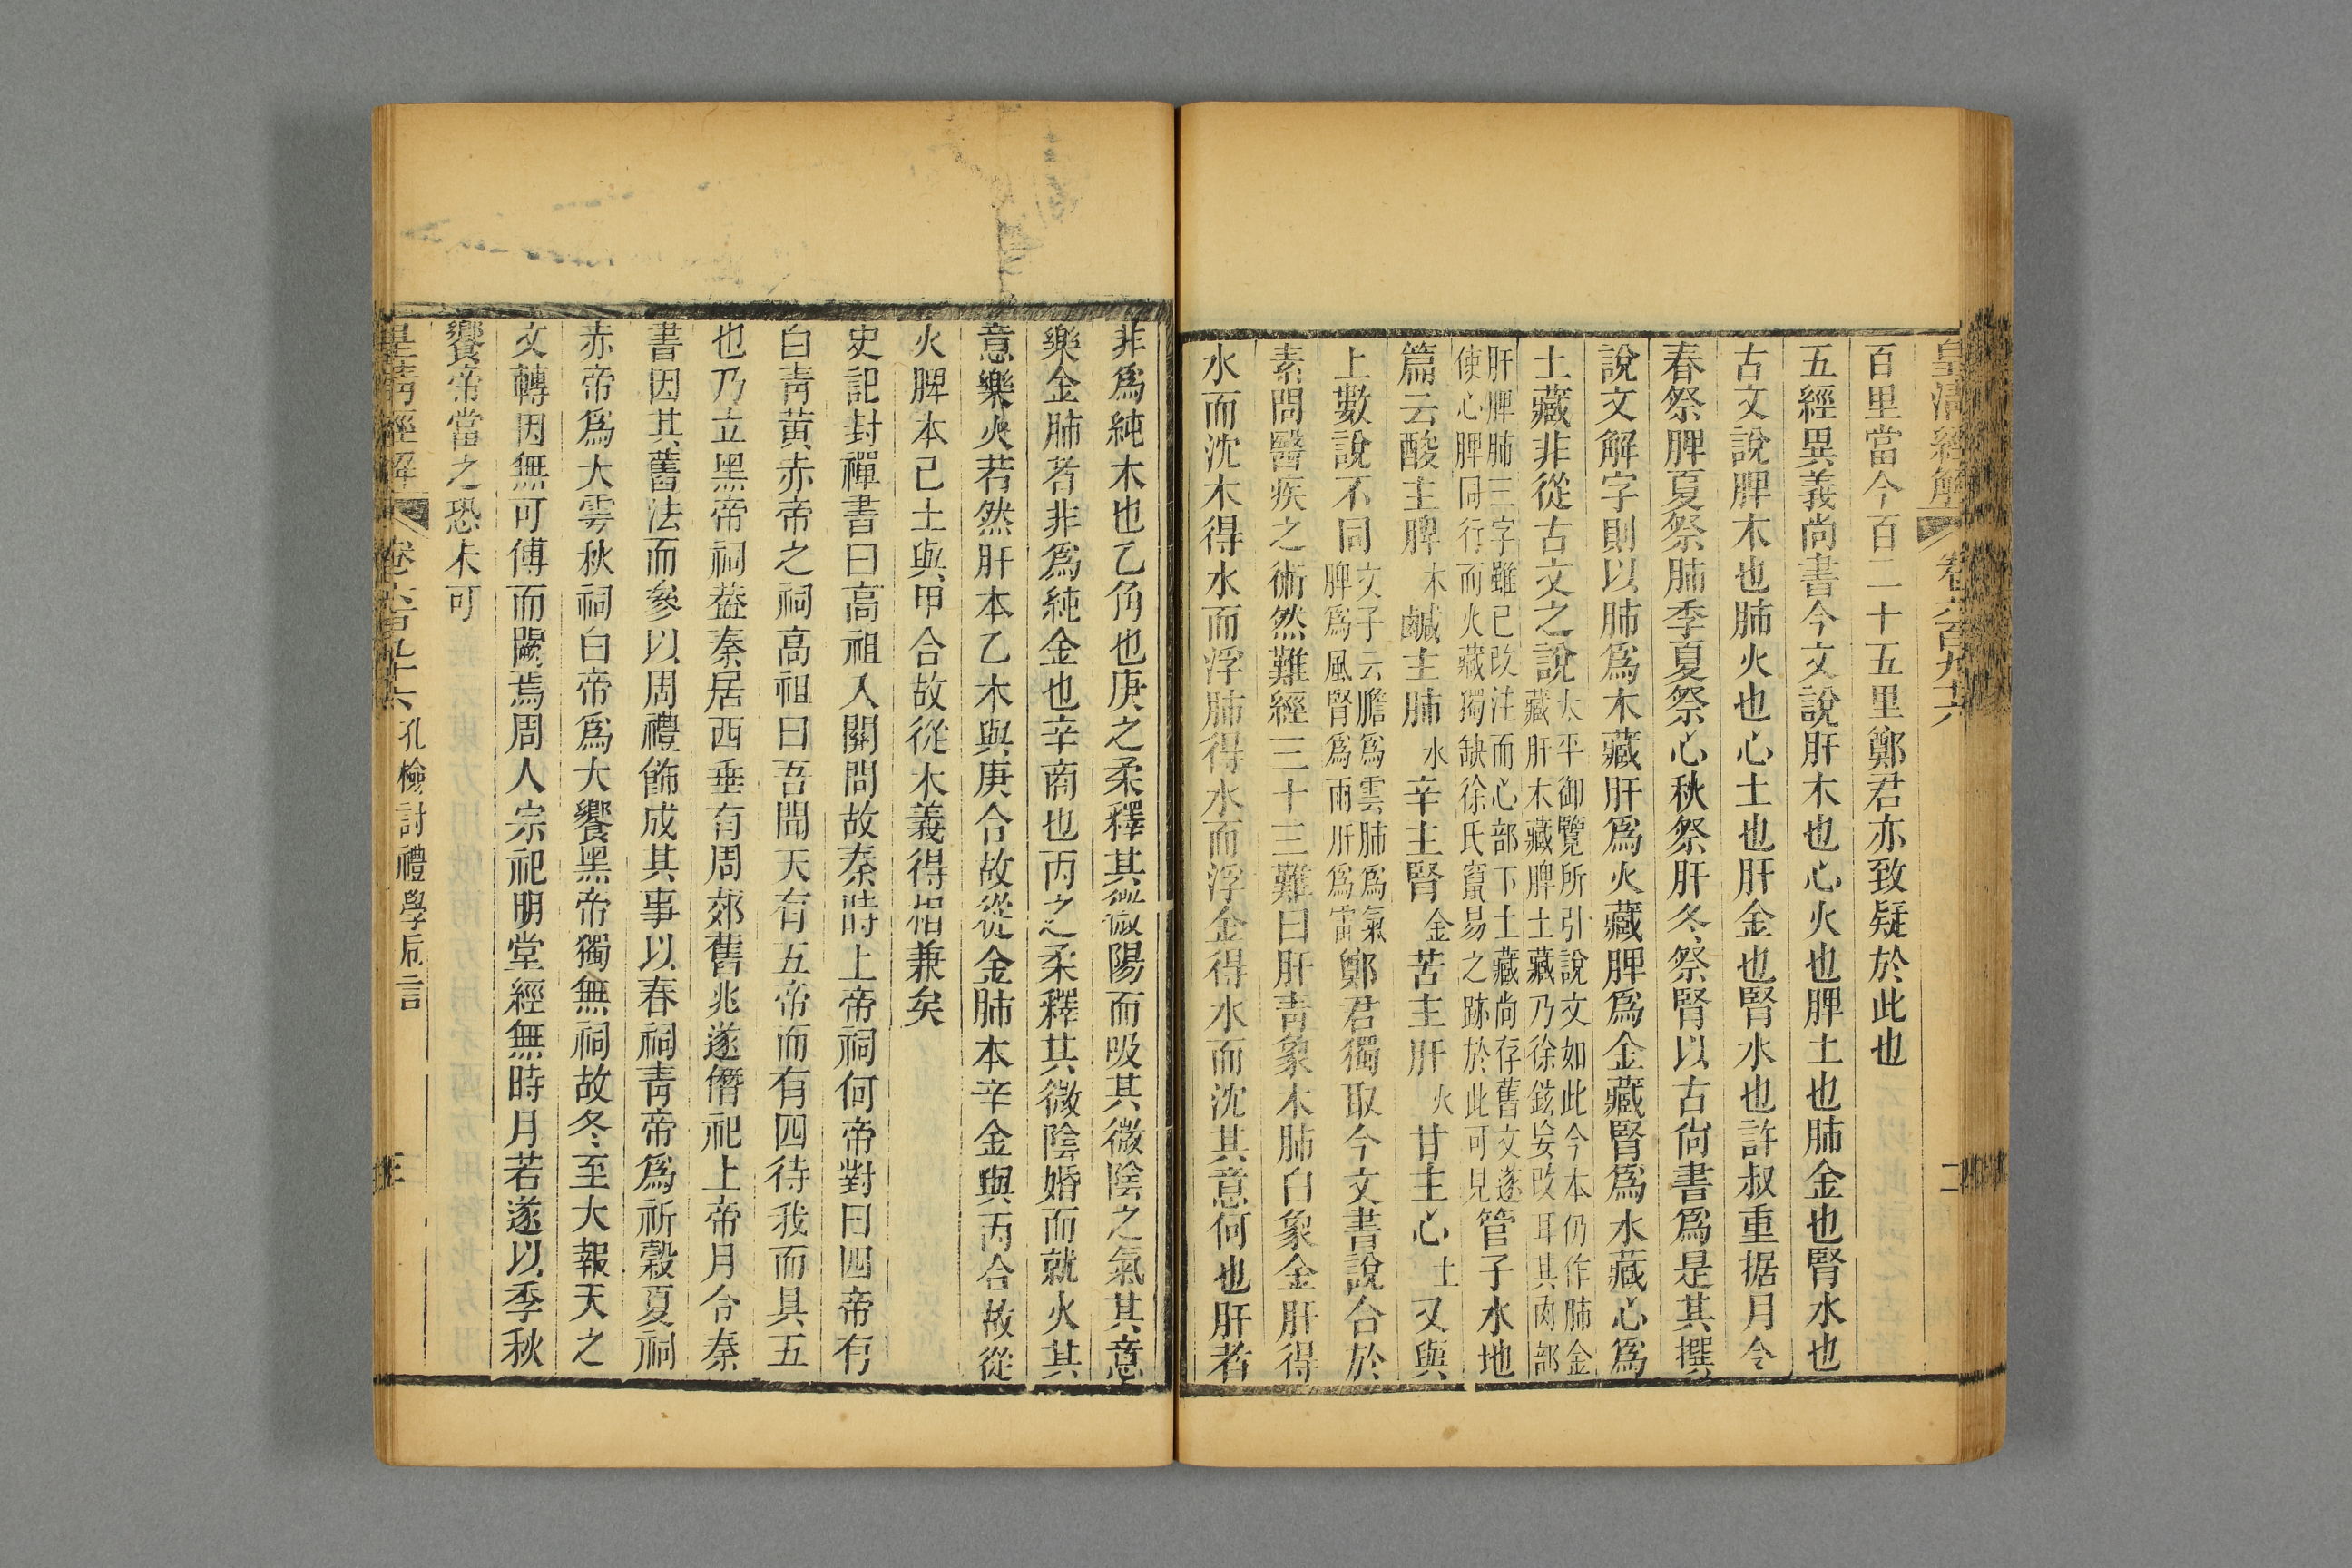 皇清經解
卷六百九十六
二
百里當今百二十五里鄭君亦致疑於此也
五經異義尚書今文說肝木也心火也脾土也肺金也腎水也
古文說脾木也肺火也心土也肝金也腎水也許叔重据月令
春祭脾夏祭肺季夏祭心秋祭肝冬祭腎以古尚書為是其撰
說文解字則以肺為木藏肝為火藏脾為金藏腎為水藏心為
土藏非從古文之說太平御覽所引說文如此今本仍作肺金藏肝木藏脾土藏乃徐鉉妄改耳其肉部
肝脾肺三字雖已改注而心部下土藏尚存舊文遂使心脾同行而火藏獨缺徐氏竄易之跡於此可見管子水地
篇云酸主脾木鹹主肺水辛主腎金苦主肝火甘主心土又與
上數說不同文子云膽為雲肺為氣脾為風腎為雨肝為雷鄭君獨取今文書說合於
素問醫疾之術然難經三十三難曰肝青象木肺白象金肝得
水而沈木得水而浮肺得水而浮金得水而沈其意何也肝者
非為純木也乙角也庚之柔釋其微陽而吸其微陰之氣其意
樂金肺者非為純金也辛商也丙之柔釋其微陰婚而就火其
意樂火若然肝本乙木與庚合故從金肺本辛金與丙合故從
火脾本己土與甲合故從木義得相兼矣
史記封禪書曰高祖入關問故秦時上帝祠何帝對曰四帝有
白青黃赤帝之祠高祖曰吾聞天有五帝而有四待我而具五
也乃立黑帝祠葢秦居西垂有周郊舊兆遂僭祀上帝月令秦
書因其舊法而參以周禮飾成其事以春祠青帝為祈穀夏祠
赤帝為大雩秋祠白帝為大饗黑帝獨無祠故冬至大報天之
文轉因無可傅而闕焉周人宗祀明堂經無時月若遂以季秋
饗帝當之恐未可
皇清經解
卷六百九十六
孔檢討禮學卮言
三